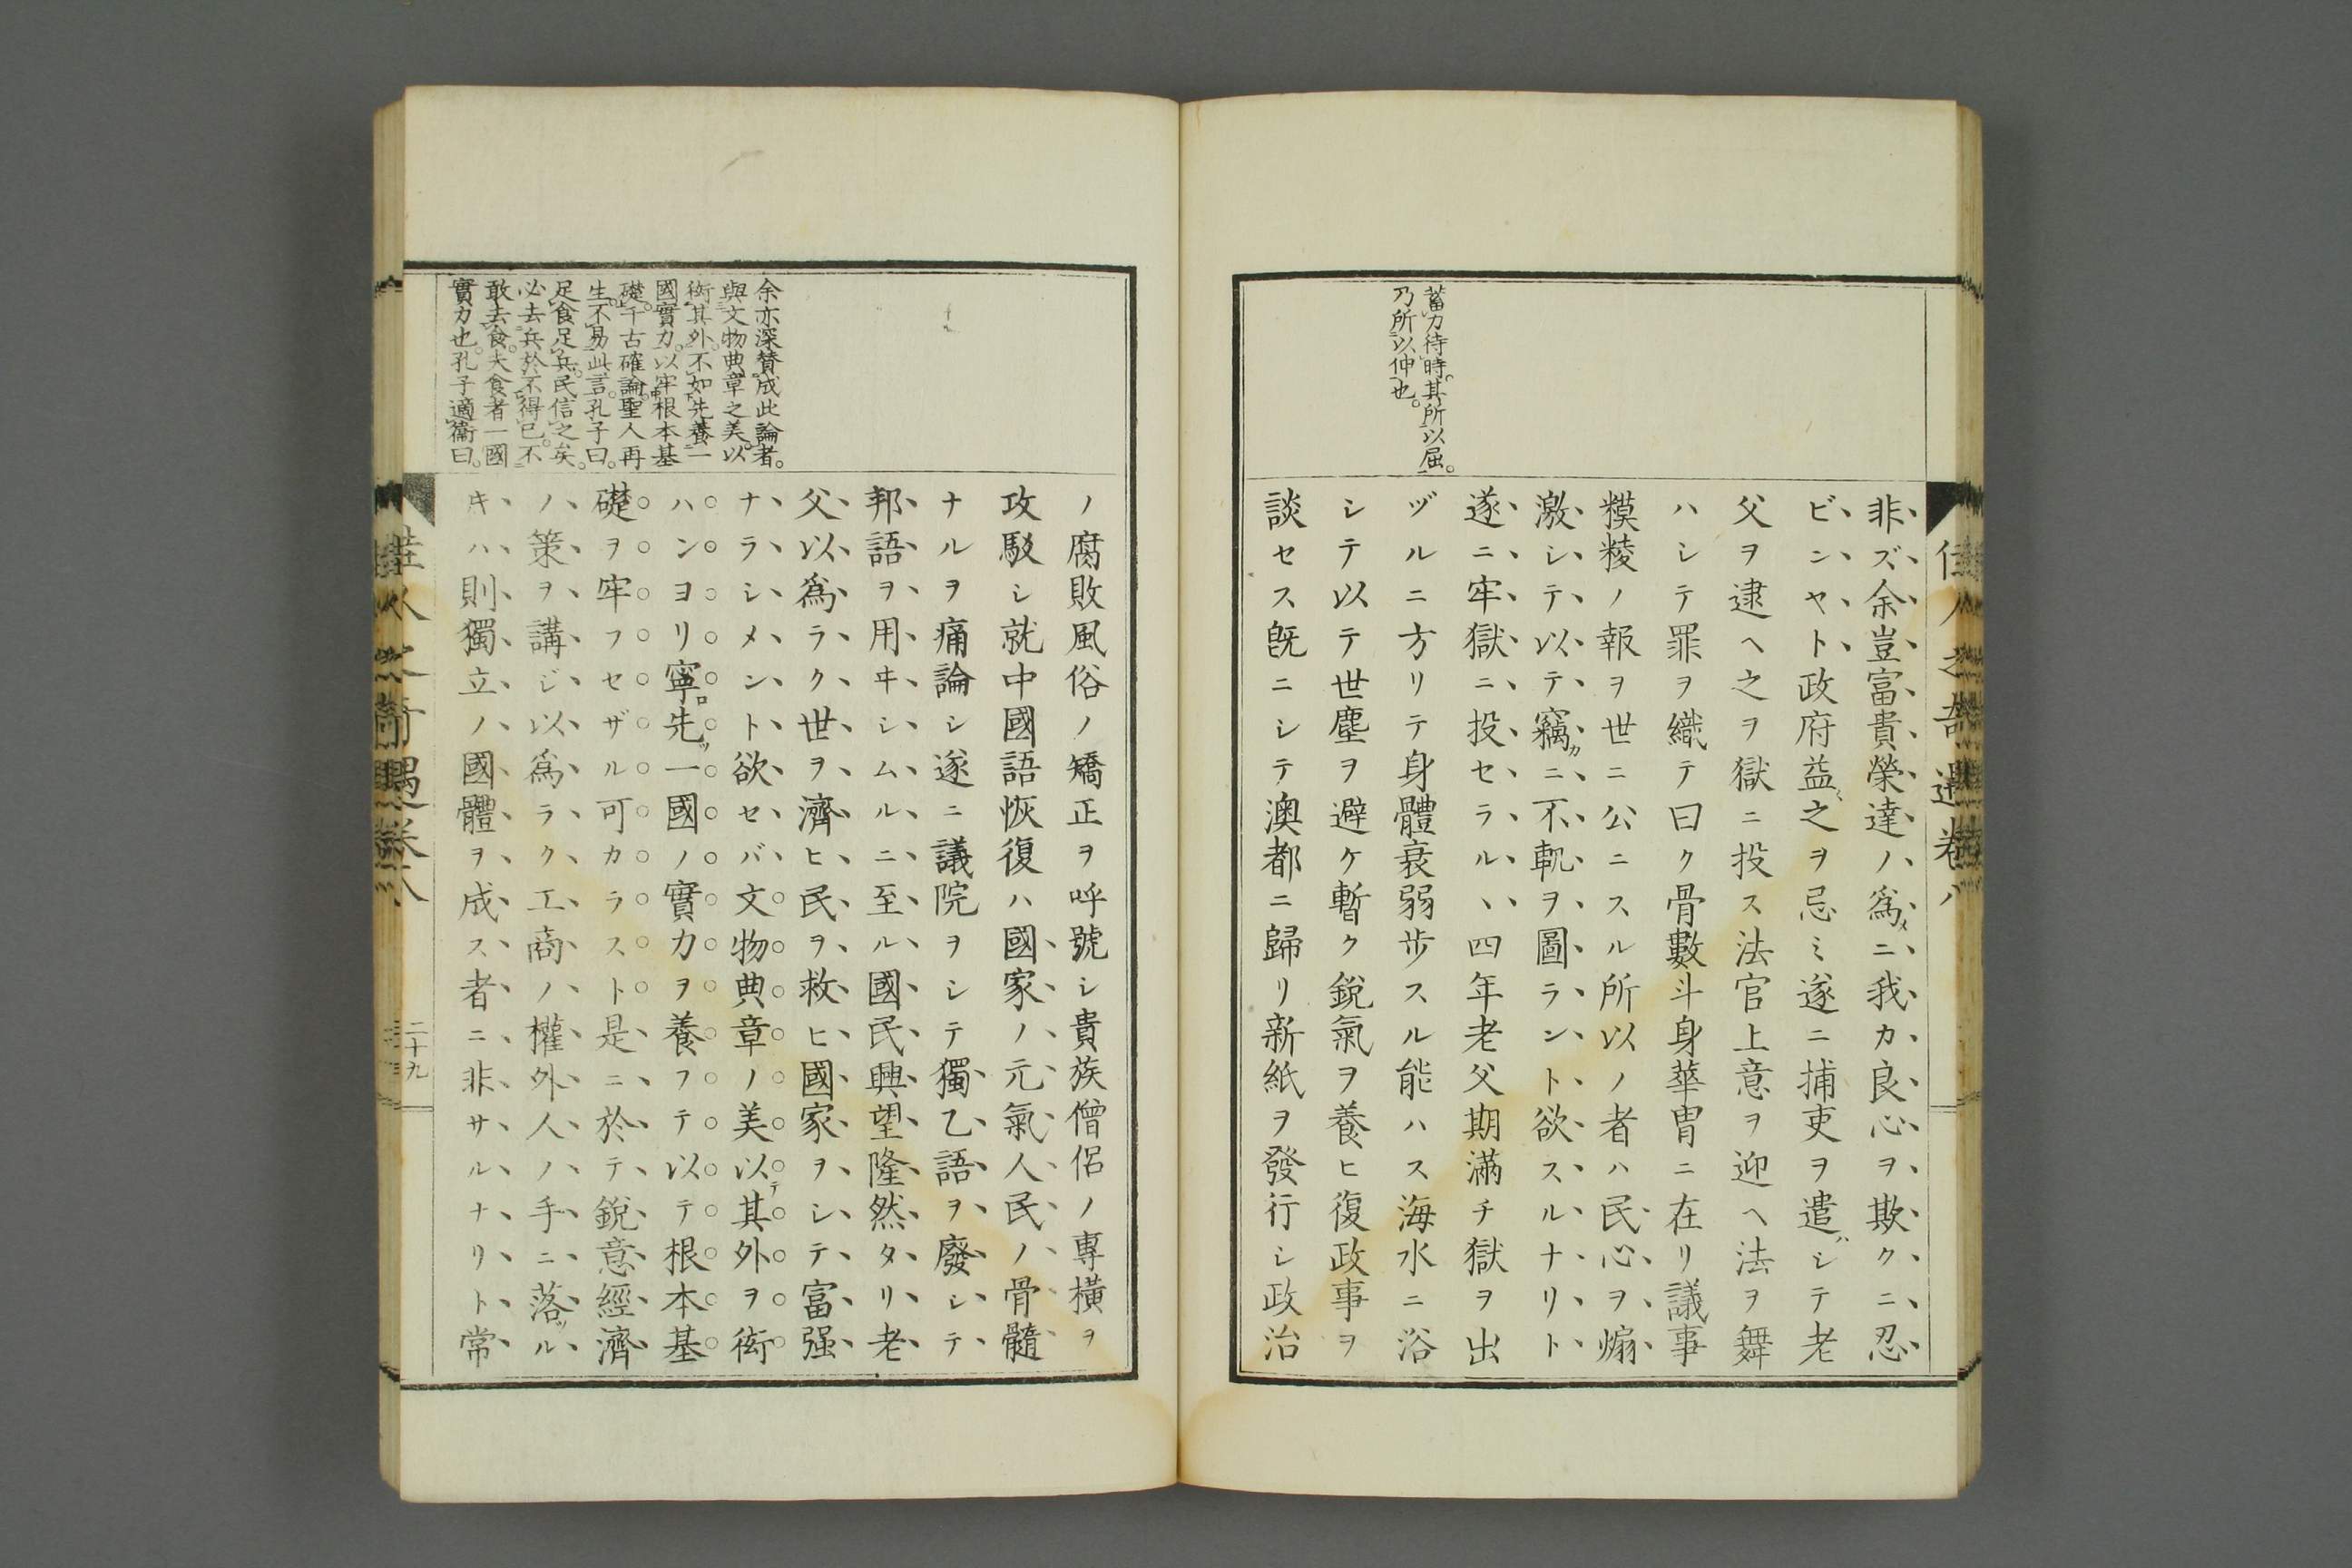 佳人之奇遇卷八
蓄力待時。其所以屈。
乃所以伸也。
非ズ余豈富貴榮達ノ爲メニ我カ良心ヲ欺クニ忍
ビンヤト政府益〻之ヲ忌ミ遂ニ捕吏ヲ遣ハシテ老
父ヲ逮ヘ之ヲ獄ニ投ス法官上意ヲ迎ヘ法ヲ舞
ハシテ罪ヲ織テ曰ク骨數斗身華冑ニ在リ議事
糢稜ノ報ヲ世ニ公ニスル所以ノ者ハ民心ヲ煽
激シテ以テ竊カニ不軌ヲ圖ラント欲スルナリト
遂ニ牢獄ニ投セラル、四年老父期滿チ獄ヲ出
ヅルニ方リテ身體衰弱歩スル能ハス海水ニ浴
シテ以テ世塵ヲ避ケ暫ク鋭氣ヲ養ヒ復政事ヲ
談セス旣ニシテ澳都ニ歸リ新紙ヲ發行シ政治
余亦深賛成此論者。
與文物典章之美。以
衒其外。不如先養一
國實力。以牢根本基
礎。千古確論。聖人再
生。不易此言。孔子曰。
足食足兵。民信之矣。
必去兵。於不得已。不
敢去食。夫食者一國
實力也。孔子適衞曰。
ノ腐敗風俗ノ矯正ヲ呼號シ貴族僧侶ノ專橫ヲ
攻駁シ就中國語恢復ハ國家ノ元氣人民ノ骨髓
ナルヲ痛論シ遂ニ議院ヲシテ獨乙語ヲ廢シテ
邦語ヲ用ヰシムルニ至ル國民興望隆然タリ老
父以爲ラク世ヲ濟ヒ民ヲ救ヒ國家ヲシテ富强
ナラシメント欲セバ文物典章ノ美以テ其外ヲ衒
ハンヨリ寧ロ先ヅ一國ノ實力ヲ養フテ以テ根本基
礎ヲ牢フセザル可カラスト是ニ於テ鋭意經濟
ノ策ヲ講ジ以爲ラク工商ノ權外人ノ手ニ落ツル
キハ則獨立ノ國體ヲ成ス者ニ非サルナリト常
佳人之奇遇卷八
二十九